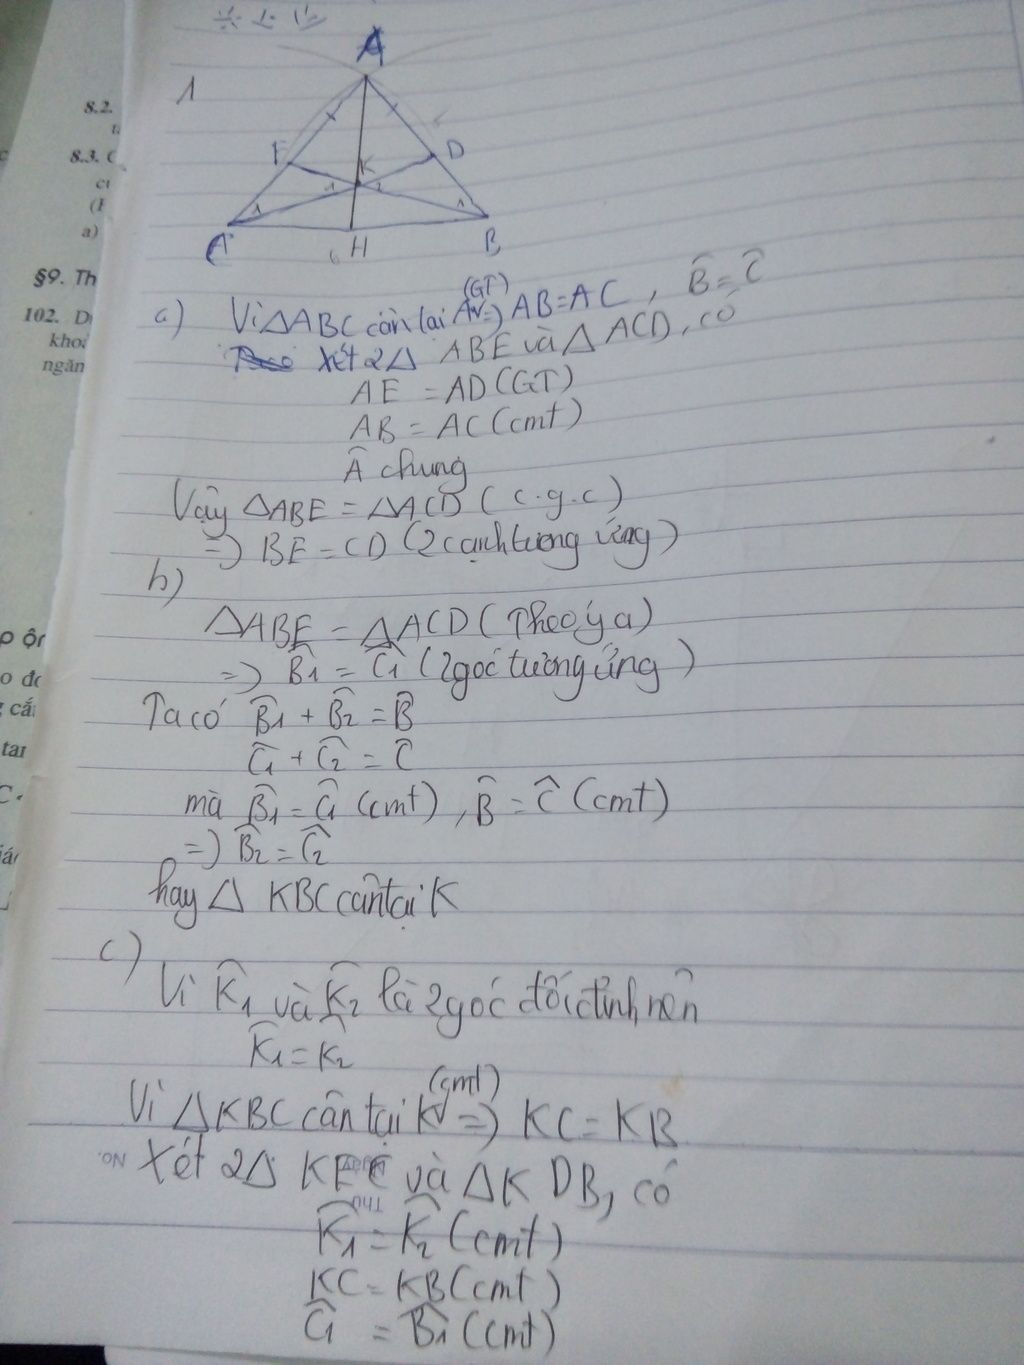 8.2.
8.3.
a)
§9. Th
102.
khoả
ngăn
1
A
E
D
K
1
2
1
1
A
H
B
a) Vì ΔABC cân tại A (GT) => AB = AC, B̂ = Ĉ
Xét 2Δ ABE và ΔACD, có
AE = AD (GT)
AB = AC (cmt)
Â chung
Vậy ΔABE = ΔACD (c.g.c)
=> BE = CD (2 cạnh tương ứng)
b)
ΔABE = ΔACD (Theo ý a)
=> B̂1 = Ĉ1 (2 góc tương ứng)
Ta có B̂1 + B̂2 = B̂
Ĉ1 + Ĉ2 = Ĉ
mà B̂1 = Ĉ1 (cmt), B̂ = Ĉ (cmt)
=> B̂2 = Ĉ2
hay Δ KBC cân tại K
c)
Vì K̂1 và K̂2 là 2 góc đối đỉnh nên
K̂1 = K̂2
Vì ΔKBC cân tại K (cmt) => KC = KB
No.
Xét 2Δ KEC và ΔKDB, có
K̂1 = K̂2 (cmt)
KC = KB (cmt)
Ĉ1 = B̂1 (cmt)